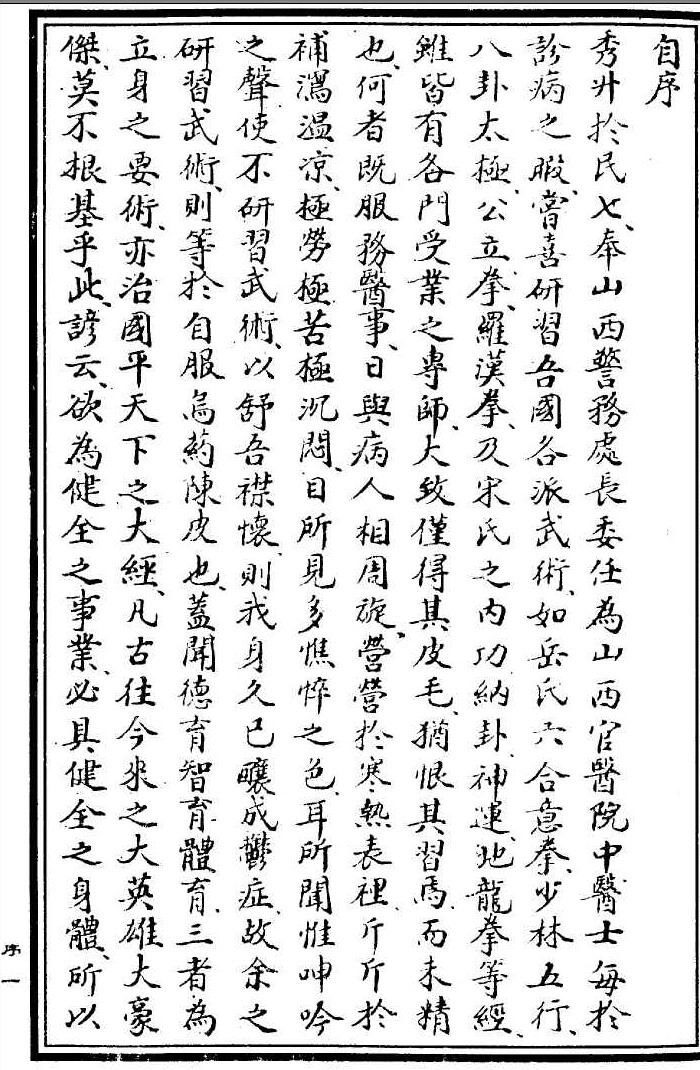 自序
秀升於民七、奉山西警務處長委任為山西官醫院中醫士每於
診病之暇、嘗喜研習吾國各派武術、如岳氏六合意拳、少林五行、
八卦太極、公立拳、羅漢拳、及宋氏之內功納卦、神運、地龍拳等經、
雖皆有各門受業之專師、大致僅得其皮毛、猶恨其習焉而未精
也、何者既服務醫事、日與病人相周旋、營營於寒熱表裡、斤斤於
補瀉溫凉、極勞極苦極沉悶、目所見多憔悴之色、耳所聞惟呻吟
之聲使不研習武術、以舒吾襟懷、則我身久已釀成鬱症、故余之
研習武術、則等於自服烏葯陳皮也、蓋聞德育智育體育三者為
立身之要術、亦治國平天下之大經、凡古往今來之大英雄大豪
傑、莫不根基乎此、諺云、欲為健全之事業、必具健全之身體、所以
序一